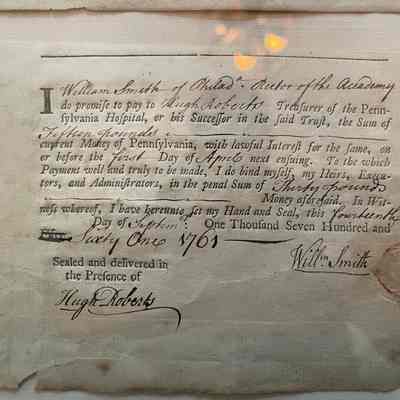 I William Smith of Philad.ᵃ Rector of the Academy
do promise to pay to Hugh Roberts Treasurer of the Penn-
sylvania Hospital, or his Successor in the said Trust, the Sum of
Fifteen pounds
current Money of Pennsylvania, with lawful Interest for the same, on
or before the first Day of April next ensuing. To the which
Payment well and truly to be made, I do bind myself, my Heirs, Execu-
tors, and Administrators, in the penal Sum of Thirty pounds
Money aforesaid. In Wit-
ness whereof, I have hereunto set my Hand and Seal, this fourteenth
Day of Septem.ʳ One Thousand Seven Hundred and
Sixty One 1761
Sealed and delivered in
the Presence of
Will.ᵐ Smith
Hugh Roberts